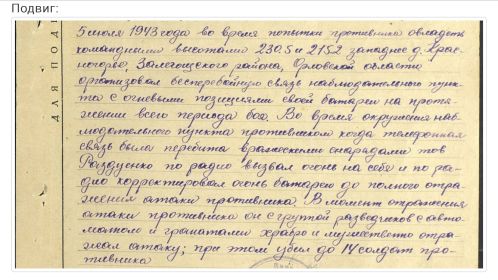 Подвиг:
ДЛЯ ПОД
5 июля 1943 года во время попытки противника овладеть
командными высотами 230.5 и 215.2 западнее д. Крас-
ногорье Залегощского района, Орловской области
организовал бесперебойную связь наблюдательного пунк-
та с огневыми позициями своей батареи на протя-
жении всего периода боя. Во время окружения наб-
людательного пункта противником когда телефонная
связь была перебита вражескими снарядами тов
по радио вызвал огонь на себя и по ра-
дио корректировал огонь батареи до полного отра-
жения атаки противника. В момент отражения
атаки противника он с группой разведчиков с авто-
матом и гранатами храбро и мужественно отра-
жал атаку; при этом убил до 14 солдат про-
тивника